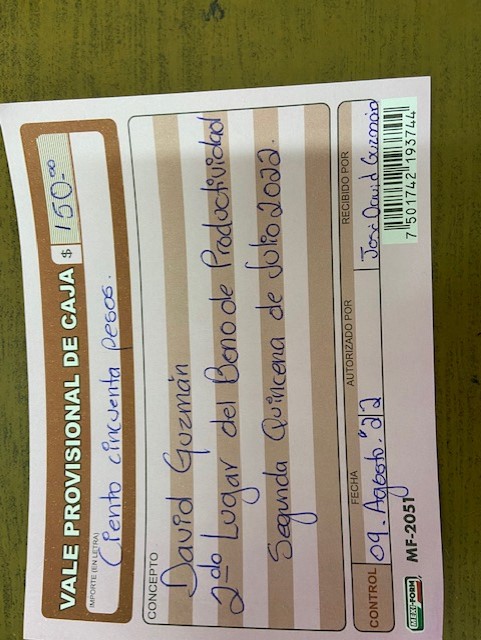 VALE PROVISIONAL DE CAJA $ 150.00
IMPORTE (EN LETRA)
Ciento cincuenta pesos.
CONCEPTO
David Guzmán
2do Lugar del Bono de Productividad
Segunda Quincena de Julio 2022.
CONTROL
FECHA
AUTORIZADO POR
RECIBIDO POR
09. Agosto. 22
José David Guzmán
MEXIFORM MF-2051
7 501742 193744